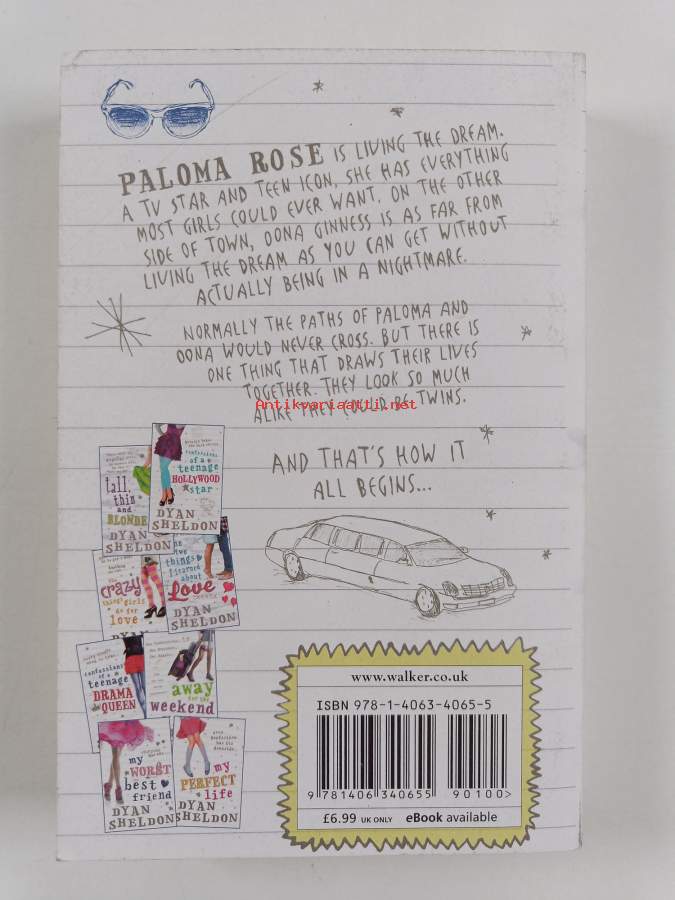 PALOMA ROSE IS LIVING THE DREAM.
A TV STAR AND TEEN ICON, SHE HAS EVERYTHING
MOST GIRLS COULD EVER WANT. ON THE OTHER
SIDE OF TOWN, OONA GINNESS IS AS FAR FROM
LIVING THE DREAM AS YOU CAN GET WITHOUT
ACTUALLY BEING IN A NIGHTMARE.
NORMALLY THE PATHS OF PALOMA AND
OONA WOULD NEVER CROSS. BUT THERE IS
ONE THING THAT DRAWS THEIR LIVES
TOGETHER. THEY LOOK SO MUCH
ALIKE THEY COULD BE TWINS.
Antikvariaatti.net
AND THAT'S HOW IT
ALL BEGINS...
tall,
thin
and
BLONDE
DYAN
SHELDON
confessions
of a
teenage
HOLLYWOOD
star
DYAN
SHELDON
crazy
things girls
do for
love
DYAN
things
I learned
about
Love
DYAN
SHELDON
confessions
of a
teenage
DRAMA
QUEEN
away
for the
weekend
my
WORST
best
friend
DYAN
SHELDON
my
PERFECT
life
DYAN
SHELDON
www.walker.co.uk
ISBN 978-1-4063-4065-5
9 781406 340655 90100>
£6.99 UK ONLY eBook available